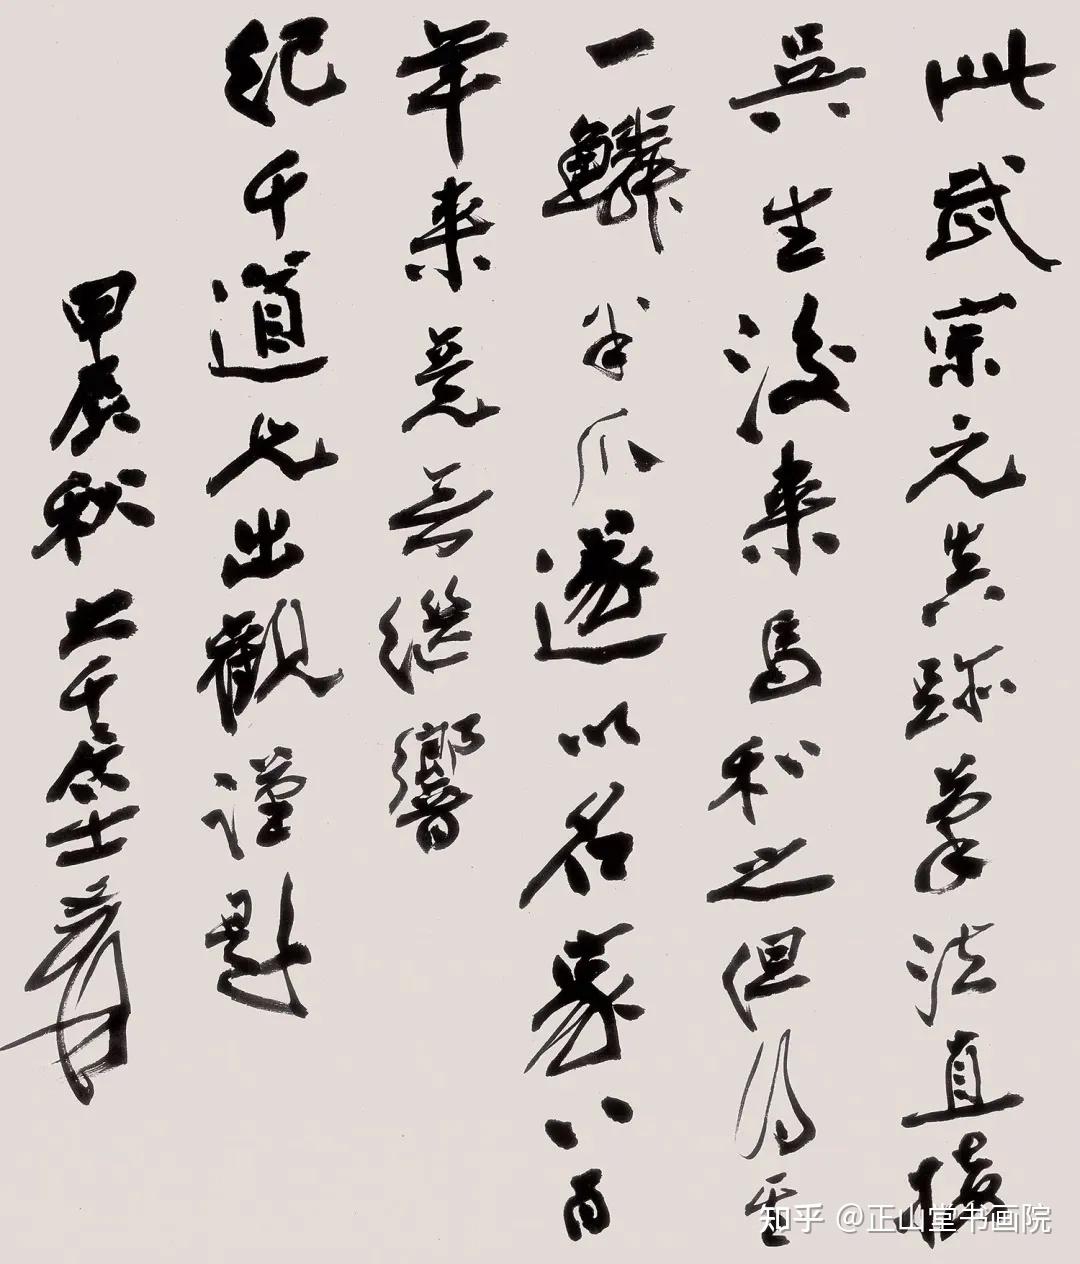 此武宗元真跡筆法直接
吳生後來馬和之但得其
一鱗半爪遂以名家八百
年來竟無繼響
紀千道兄出觀謹題
甲辰秋大千居士爰
知乎 @正山堂书画院